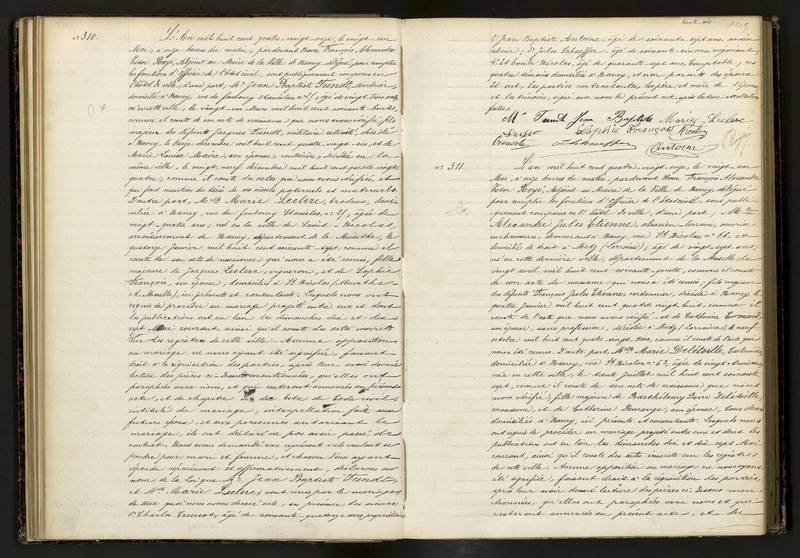 N° 310. L'An mil huit cent quatre-vingt-onze, le vingt-un
Mai, à onze heures du matin, pardevant Nous, François Alexandre
Victor Royé, Adjoint au Maire de la Ville de Nancy, délégué pour remplir
les fonctions d'officier de l'Etat civil, sont publiquement comparus en
l'hôtel de ville, d'une part, Mr Jean Baptiste
domicilié à Nancy, rue du faubourg Stanislas n°
né en cette ville, le vingt-un Mars mil huit cent soixante huit,
comme il conste de son acte de naissance que nous avons vérifié, fils
majeur des défunts Jacques militaire retraité, décédé
à Nancy, le treize décembre mil huit cent quatre vingt six, et de
Marie Louise Maire, son épouse, couturière, décédée en la
même ville, le vingt neuf décembre mil huit cent quatre vingt
quatre, comme il conste des actes que nous avons vérifiés, et
que font mention du décès de ses aïeuls paternels et maternels.
D'autre part, Melle Marie Leclerc, brodeuse, domi-
ciliée à Nancy, rue du faubourg Stanislas, n° âgée de
vingt quatre ans, née en la ville de Saint Nicolas,
arrondissement de Nancy, département de la Meurthe, le
quatorze Janvier mil huit cent soixante sept, comme il
conste de son acte de naissance qui nous a été remis, fille
majeure de Jacques Leclerc, vigneron, et de Sophie
François, son épouse, domiciliés à St Nicolas, (Meurthe
et Moselle), ici présents et consentants. Lesquels nous ont
requis de procéder au mariage projeté entre eux et dont
les publications ont eu lieu les dimanches dix et dix
sept Mai courant, ainsi qu'il conste des actes inscrits
sur les registres de cette ville. Aucune opposition
au mariage ne nous ayant été signifiée, faisant
droit à la réquisition des parties, après leur avoir donné
lecture des pièces ci-dessus mentionnées, qu'elles ont
paraphées avec nous, et qui resteront annexées au présent
acte, et du chapitre six du titre du Code civil,
intitulé du mariage, interpellation faite aux
futurs époux et aux personnes autorisant le
mariage, ils ont déclaré ne pas avoir passé de
contrat. Nous avons demandé aux requérants s'ils veulent se
prendre pour mari et femme, et chacun d'eux ayant
répondu séparément et affirmativement, déclarons au
nom de la Loi que Mr Jean Baptiste
et Melle Marie Leclerc, sont unis par le mariage,
de tout quoi nous avons dressé acte, en présence des sieurs,
1° Charles âgé de soixante-quatorze ans, propriétaire
2° Jean Baptiste Antoine, âgé de soixante sept ans,
3° Jules Schaeffer, âgé de soixante six ans, négociant,
4° et Emile Nicolas, âgé de quarante sept ans, Comptable, ces
quatre témoins domiciliés à Nancy, et non parents des époux.
Et ont, les parties contractantes, les père et mère de l'épouse
et les témoins, signé avec nous le présent acte, après lecture
faite.
Jean Baptiste Marie Leclerc
Leclerc Sophie François Nicolas
Schaeffer Antoine
N° 311. L'an mil huit cent quatre-vingt onze, le vingt-un
Mai, à onze heures du matin, pardevant Nous, François Alexandre
Victor Royé, Adjoint au Maire de la Ville de Nancy, délégué
pour remplir les fonctions d'officier de l'Etat civil, sont publi-
quement comparus en l'hôtel de ville, d'une part, Mr
Alexandre Jules Etienne, alsacien-lorrain, ouvrier
en chaussures, demeurant à Nancy, rue St Nicolas, n° 66, et
domicilié de droit à Metz (Lorraine), âgé de vingt sept ans,
né en cette dernière ville, département de la Moselle, le
vingt avril mil huit cent soixante-quatre, comme il conste
de son acte de naissance qui nous a été remis, fils majeur
des défunts François Jules Etienne, cordonnier, décédé à Nancy, le
quatre Janvier mil huit cent quatre vingt huit, comme il
conste de l'acte que nous avons vérifié, et de Catherine
son épouse, sans profession, décédée à Metz (Lorraine), le neuf
octobre mil huit cent quatre vingt trois, comme il conste de l'acte qui
nous été remis. D'autre part, Melle Marie Delétoille,
domiciliée à Nancy, rue St Nicolas n° 63, âgée de vingt-trois ans,
née en cette ville, le trente Juillet mil huit cent soixante
sept, comme il conste de son acte de naissance que nous
avons vérifié, fille majeure de Barthélemy Delétoille,
manœuvre, et de Catherine Demange, son épouse, tous deux
domiciliés à Nancy, ici présents et consentants. Lesquels nous
ont requis de procéder au mariage projeté entre eux et dont les
publications ont eu lieu les dimanches dix et dix sept Mai
courant, ainsi qu'il conste des actes inscrits sur les registres
de cette ville. Aucune opposition au mariage ne nous ayant
été signifiée, faisant droit à la réquisition des parties,
après leur avoir donné lecture des pièces ci-dessus men-
tionnées, qu'elles ont paraphées avec nous et qui
resteront annexées au présent acte, et du